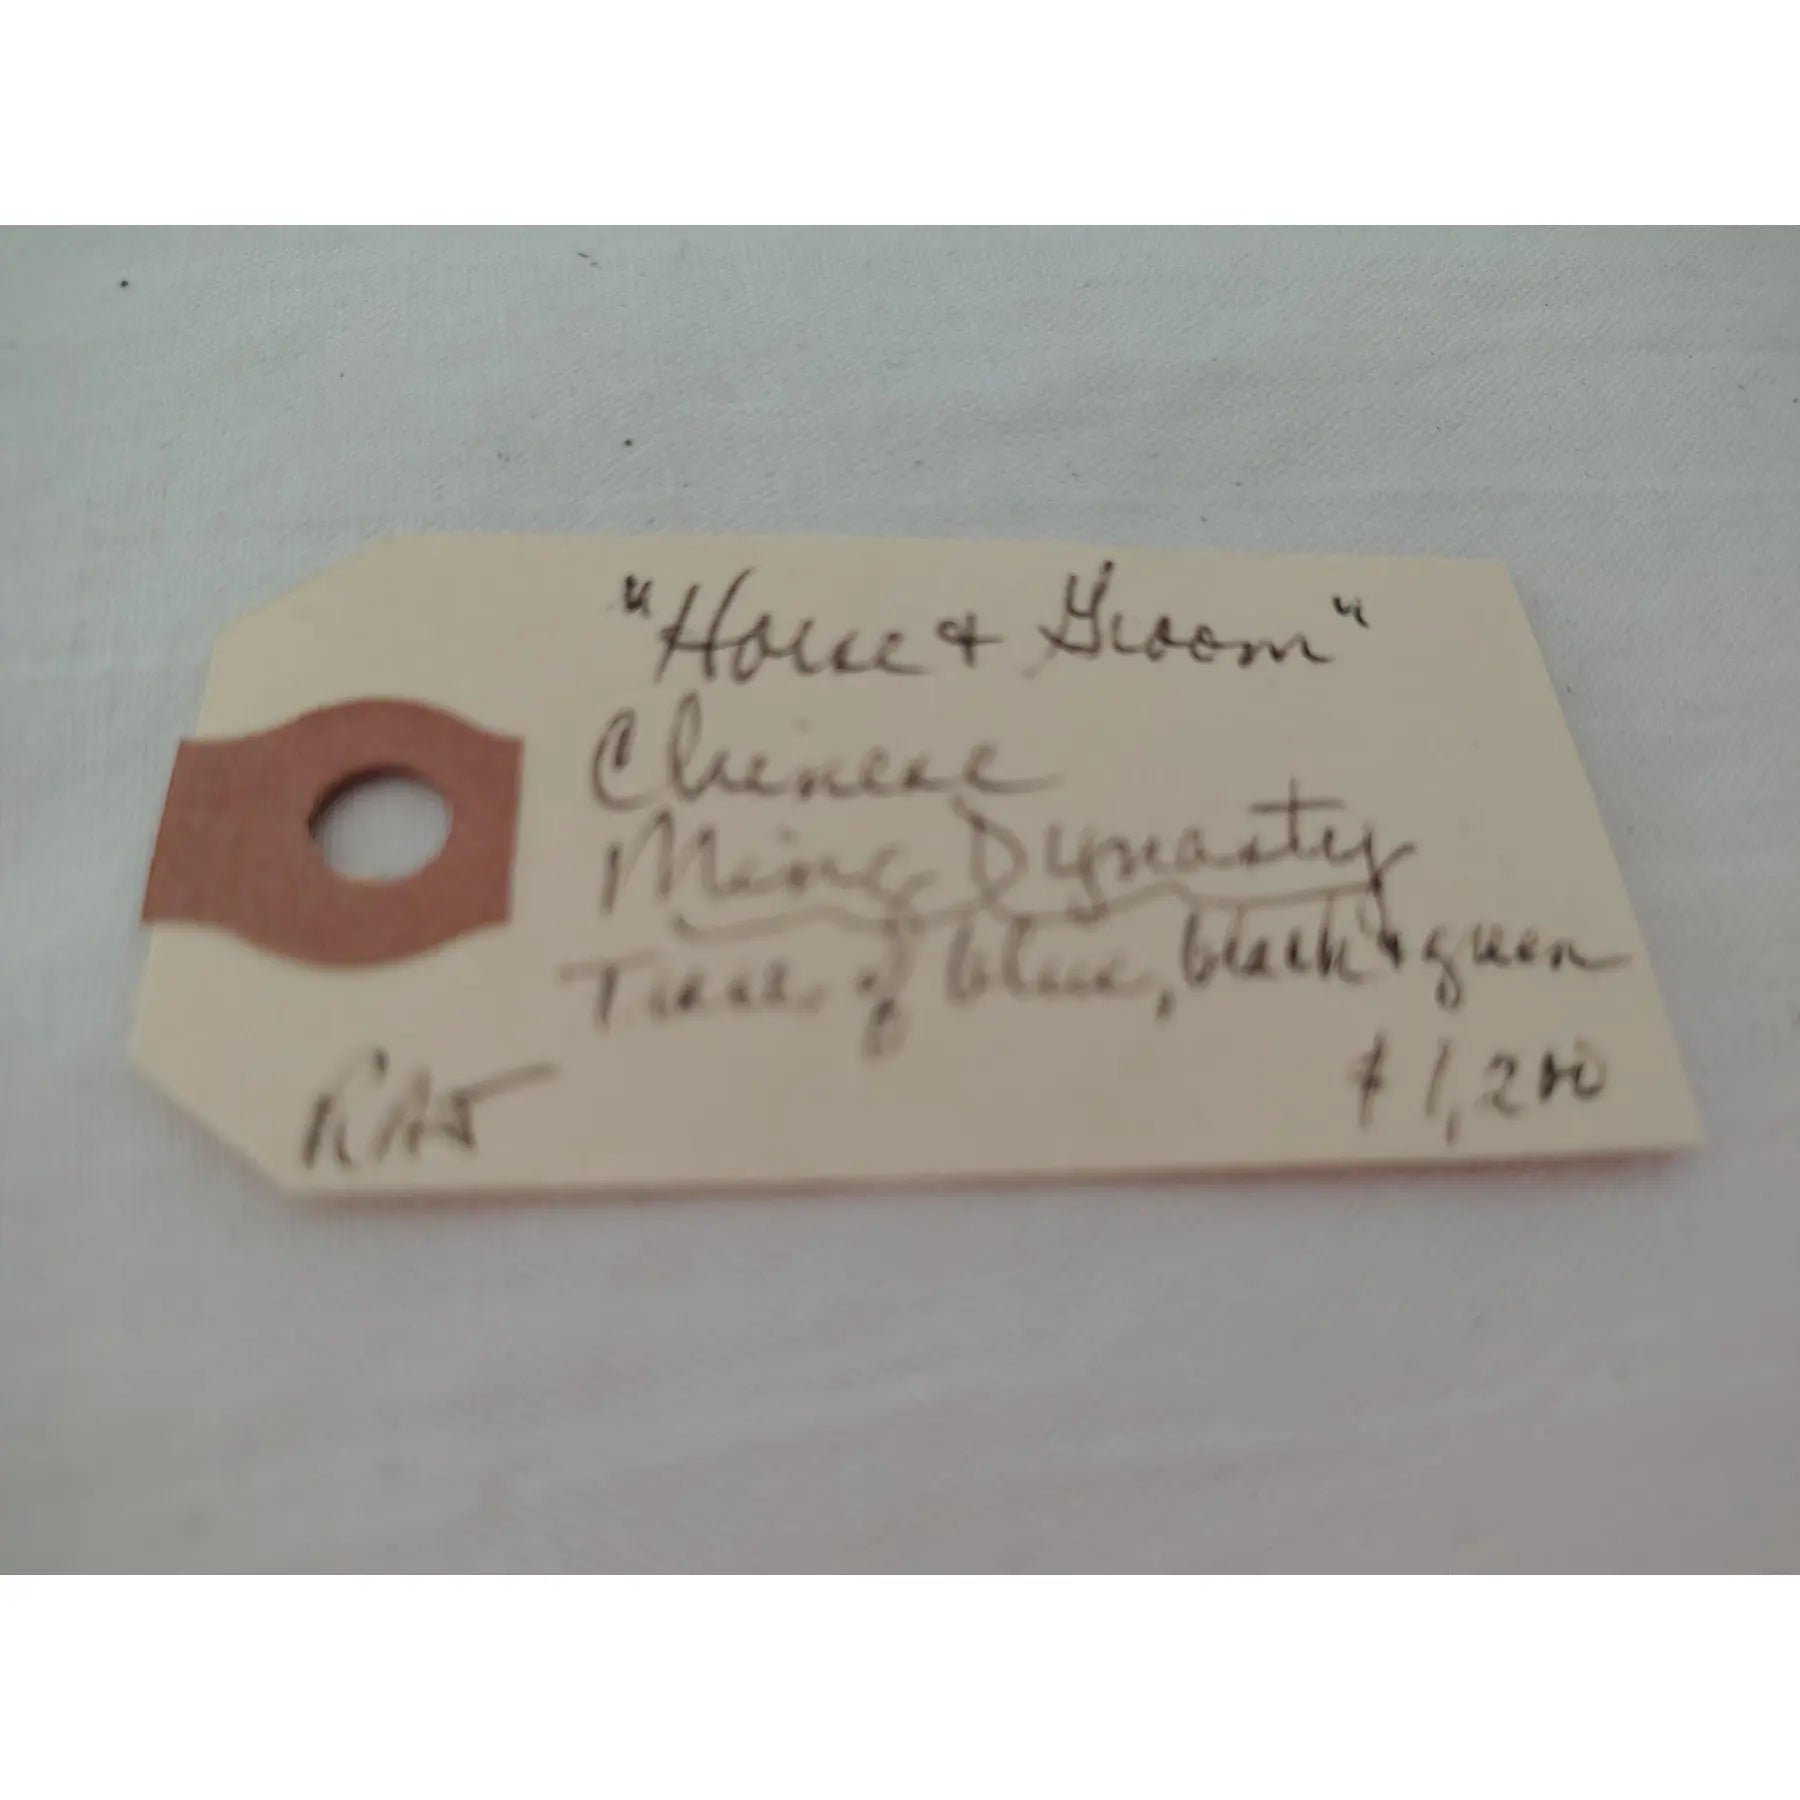 "Horse & Groom"
Chinese
Ming Dynasty
Traces of blue, black & green
$1,200